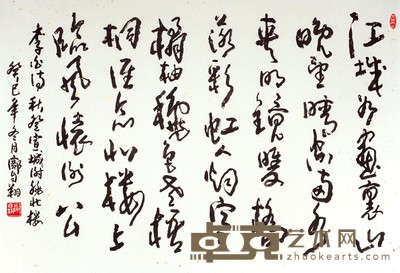 江城如畫裏山
晚望晴空兩水
夾明鏡雙橋
落彩虹人烟寒
橘柚秋色老梧
桐誰念北樓上
臨風懷謝公
李白詩秋登宣城謝朓北樓
癸巳年冬月鄭翔
卓克艺术网
zhuokearts.com